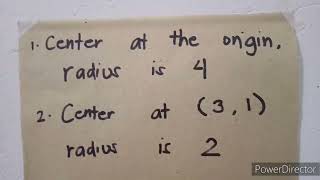 1. Center at the origin,
radius is 4
2. Center at (3, 1)
radius is 2
PowerDirector